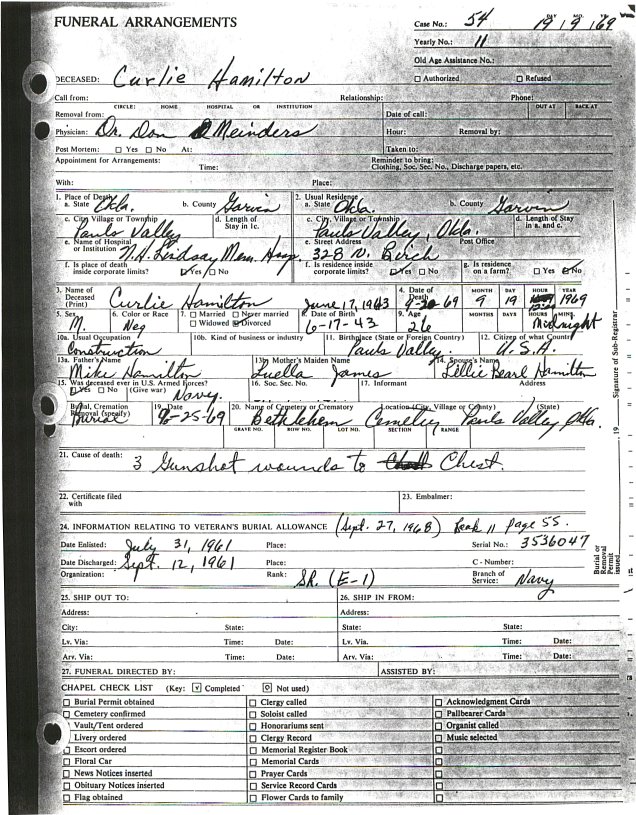 FUNERAL ARRANGEMENTS
Case No.: 54 19 | 9 | 69
DAY MO. YR.
Yearly No.: 11
Old Age Assistance No.:
DECEASED: Curlie Hamilton □ Authorized □ Refused
Call from: Relationship: Phone:
CIRCLE: HOME HOSPITAL OR INSTITUTION OUT AT BACK AT
Removal from: Date of call:
Physician: Dr. Don Meinders Hour: Removal by:
Post Mortem: □ Yes □ No At: Taken to:
Appointment for Arrangements: Reminder to bring:
Time: Clothing, Soc. Sec. No., Discharge papers, etc.
With: Place:
1. Place of Death 2. Usual Residence
a. State Okla. b. County Garvin a. State Okla. b. County Garvin
c. City Village or Township d. Length of Stay in 1c. c. City, Village or Township d. Length of Stay in a. and c.
Pauls Valley Pauls Valley, Okla.
e. Name of Hospital or Institution W.H. Lindsay Mem. Hosp. e. Street Address 328 N. Birch Post Office
f. Is place of death inside corporate limits? ☑ Yes □ No f. Is residence inside corporate limits? ☑ Yes □ No g. Is residence on a farm? □ Yes ☑ No
3. Name of Deceased (Print) Curlie Hamilton June 17, 1943 4. Date of Death 9-20-69 MONTH DAY HOUR YEAR
9 19 1969
5. Sex 6. Color or Race 7. □ Married □ Never married □ Widowed ☑ Divorced 8. Date of Birth 9. Age MONTHS DAYS HOURS MINS.
M. Neg 6-17-43 26 Midnight
10a. Usual Occupation 10b. Kind of business or industry 11. Birthplace (State or Foreign Country) 12. Citizen of what Country
Construction Pauls Valley. U.S.A.
13a. Father's Name 13b. Mother's Maiden Name 14. Spouse's Name
Mike Hamilton Luella James Lillie Pearl Hamilton
15. Was deceased ever in U.S. Armed Forces? 16. Soc. Sec. No. 17. Informant Address
☑ Yes □ No (Give war) Navy.
Burial, Cremation Removal (specify) 19. Date 20. Name of Cemetery or Crematory Location (City, Village or County) (State)
Burial 9-25-69 Bethlehem Cemetery Pauls Valley Okla.
GRAVE NO. ROW NO. LOT NO. SECTION RANGE
21. Cause of death: 3 Gunshot wounds to Chest.
22. Certificate filed with 23. Embalmer:
24. INFORMATION RELATING TO VETERAN'S BURIAL ALLOWANCE (Sept. 27, 1968) Book 11 Page 55.
Date Enlisted: July 31, 1961 Place: Serial No.: 3536047
Date Discharged: Sept. 12, 1961 Place: C - Number:
Organization: Rank: SR. (E-1) Branch of Service: Navy
25. SHIP OUT TO: 26. SHIP IN FROM:
Address: Address:
City: State: State: State:
Lv. Via: Time: Date: Lv. Via: Time: Date:
Arv. Via: Time: Date: Arv. Via: Time: Date:
27. FUNERAL DIRECTED BY: ASSISTED BY:
CHAPEL CHECK LIST (Key: ☑ Completed ⊙ Not used)
□ Burial Permit obtained □ Clergy called □ Acknowledgment Cards
□ Cemetery confirmed □ Soloist called □ Pallbearer Cards
□ Vault/Tent ordered □ Honorariums sent □ Organist called
□ Livery ordered □ Clergy Record □ Music selected
□ Escort ordered □ Memorial Register Book
□ Floral Car □ Memorial Cards
□ News Notices inserted □ Prayer Cards
□ Obituary Notices inserted □ Service Record Cards
□ Flag obtained □ Flower Cards to family
Burial or Removal Permit issued 19 Signature of Sub-Registrar